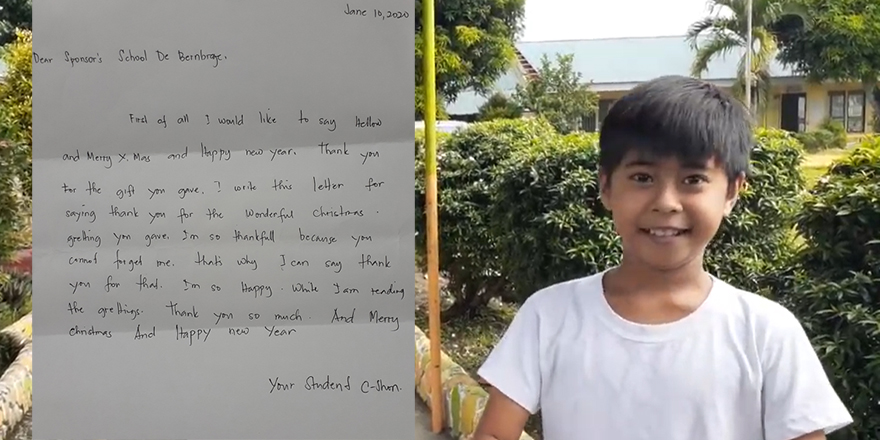 Jane 10, 2020
Dear Sponsor's School De Bernbroge.
First of all I would like to say Hellow
and Merry X. Mas and Happy new year. Thank you
for the gift you gave. I write this letter for
saying thank you for the wonderful christmas.
gretting you gave. I'm so thankfull because you
cannot forget me. that's why I can say thank
you for that. I'm so Happy. While I am reading
the grettings. Thank you so much. And Merry
christmas And Happy new Year
Your Student C-Jhon.